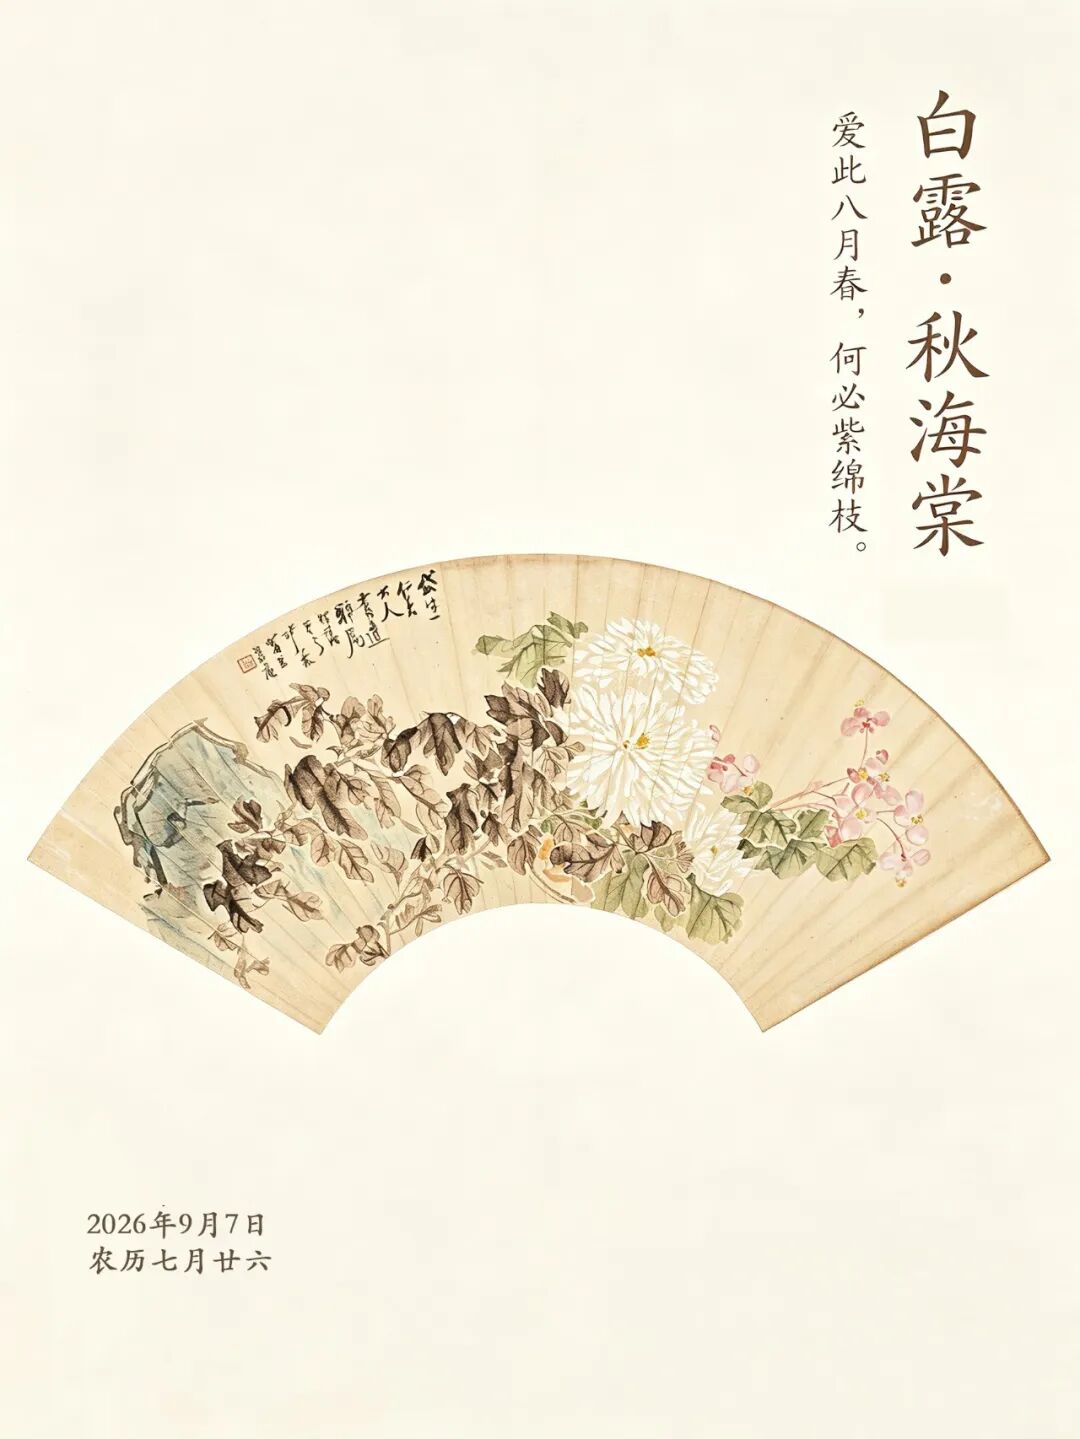 白露·秋海棠
爱此八月春，何必紫绵枝。
2026年9月7日
农历七月廿六